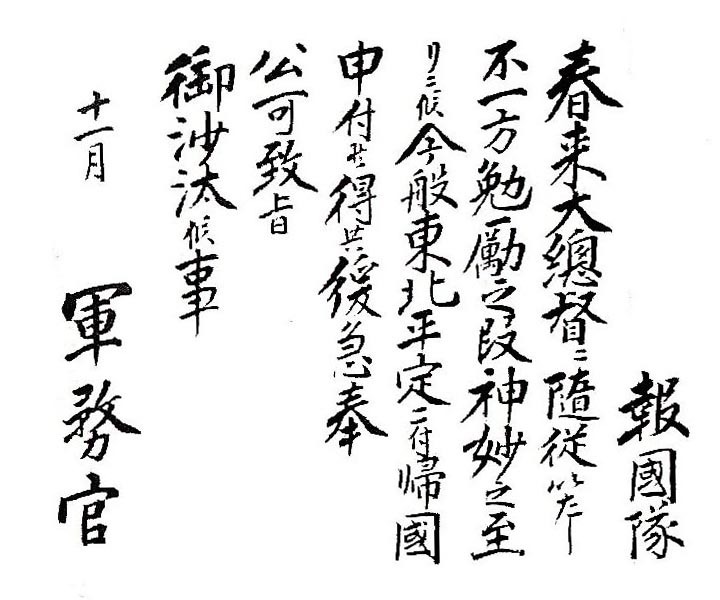 報國隊
春来大總督ニ隨従
不一方勉励之段神妙之至
リニ候今般東北平定ニ付帰國
申付候得共緩急奉
公可致旨
御沙汰候事
十一月
軍務官